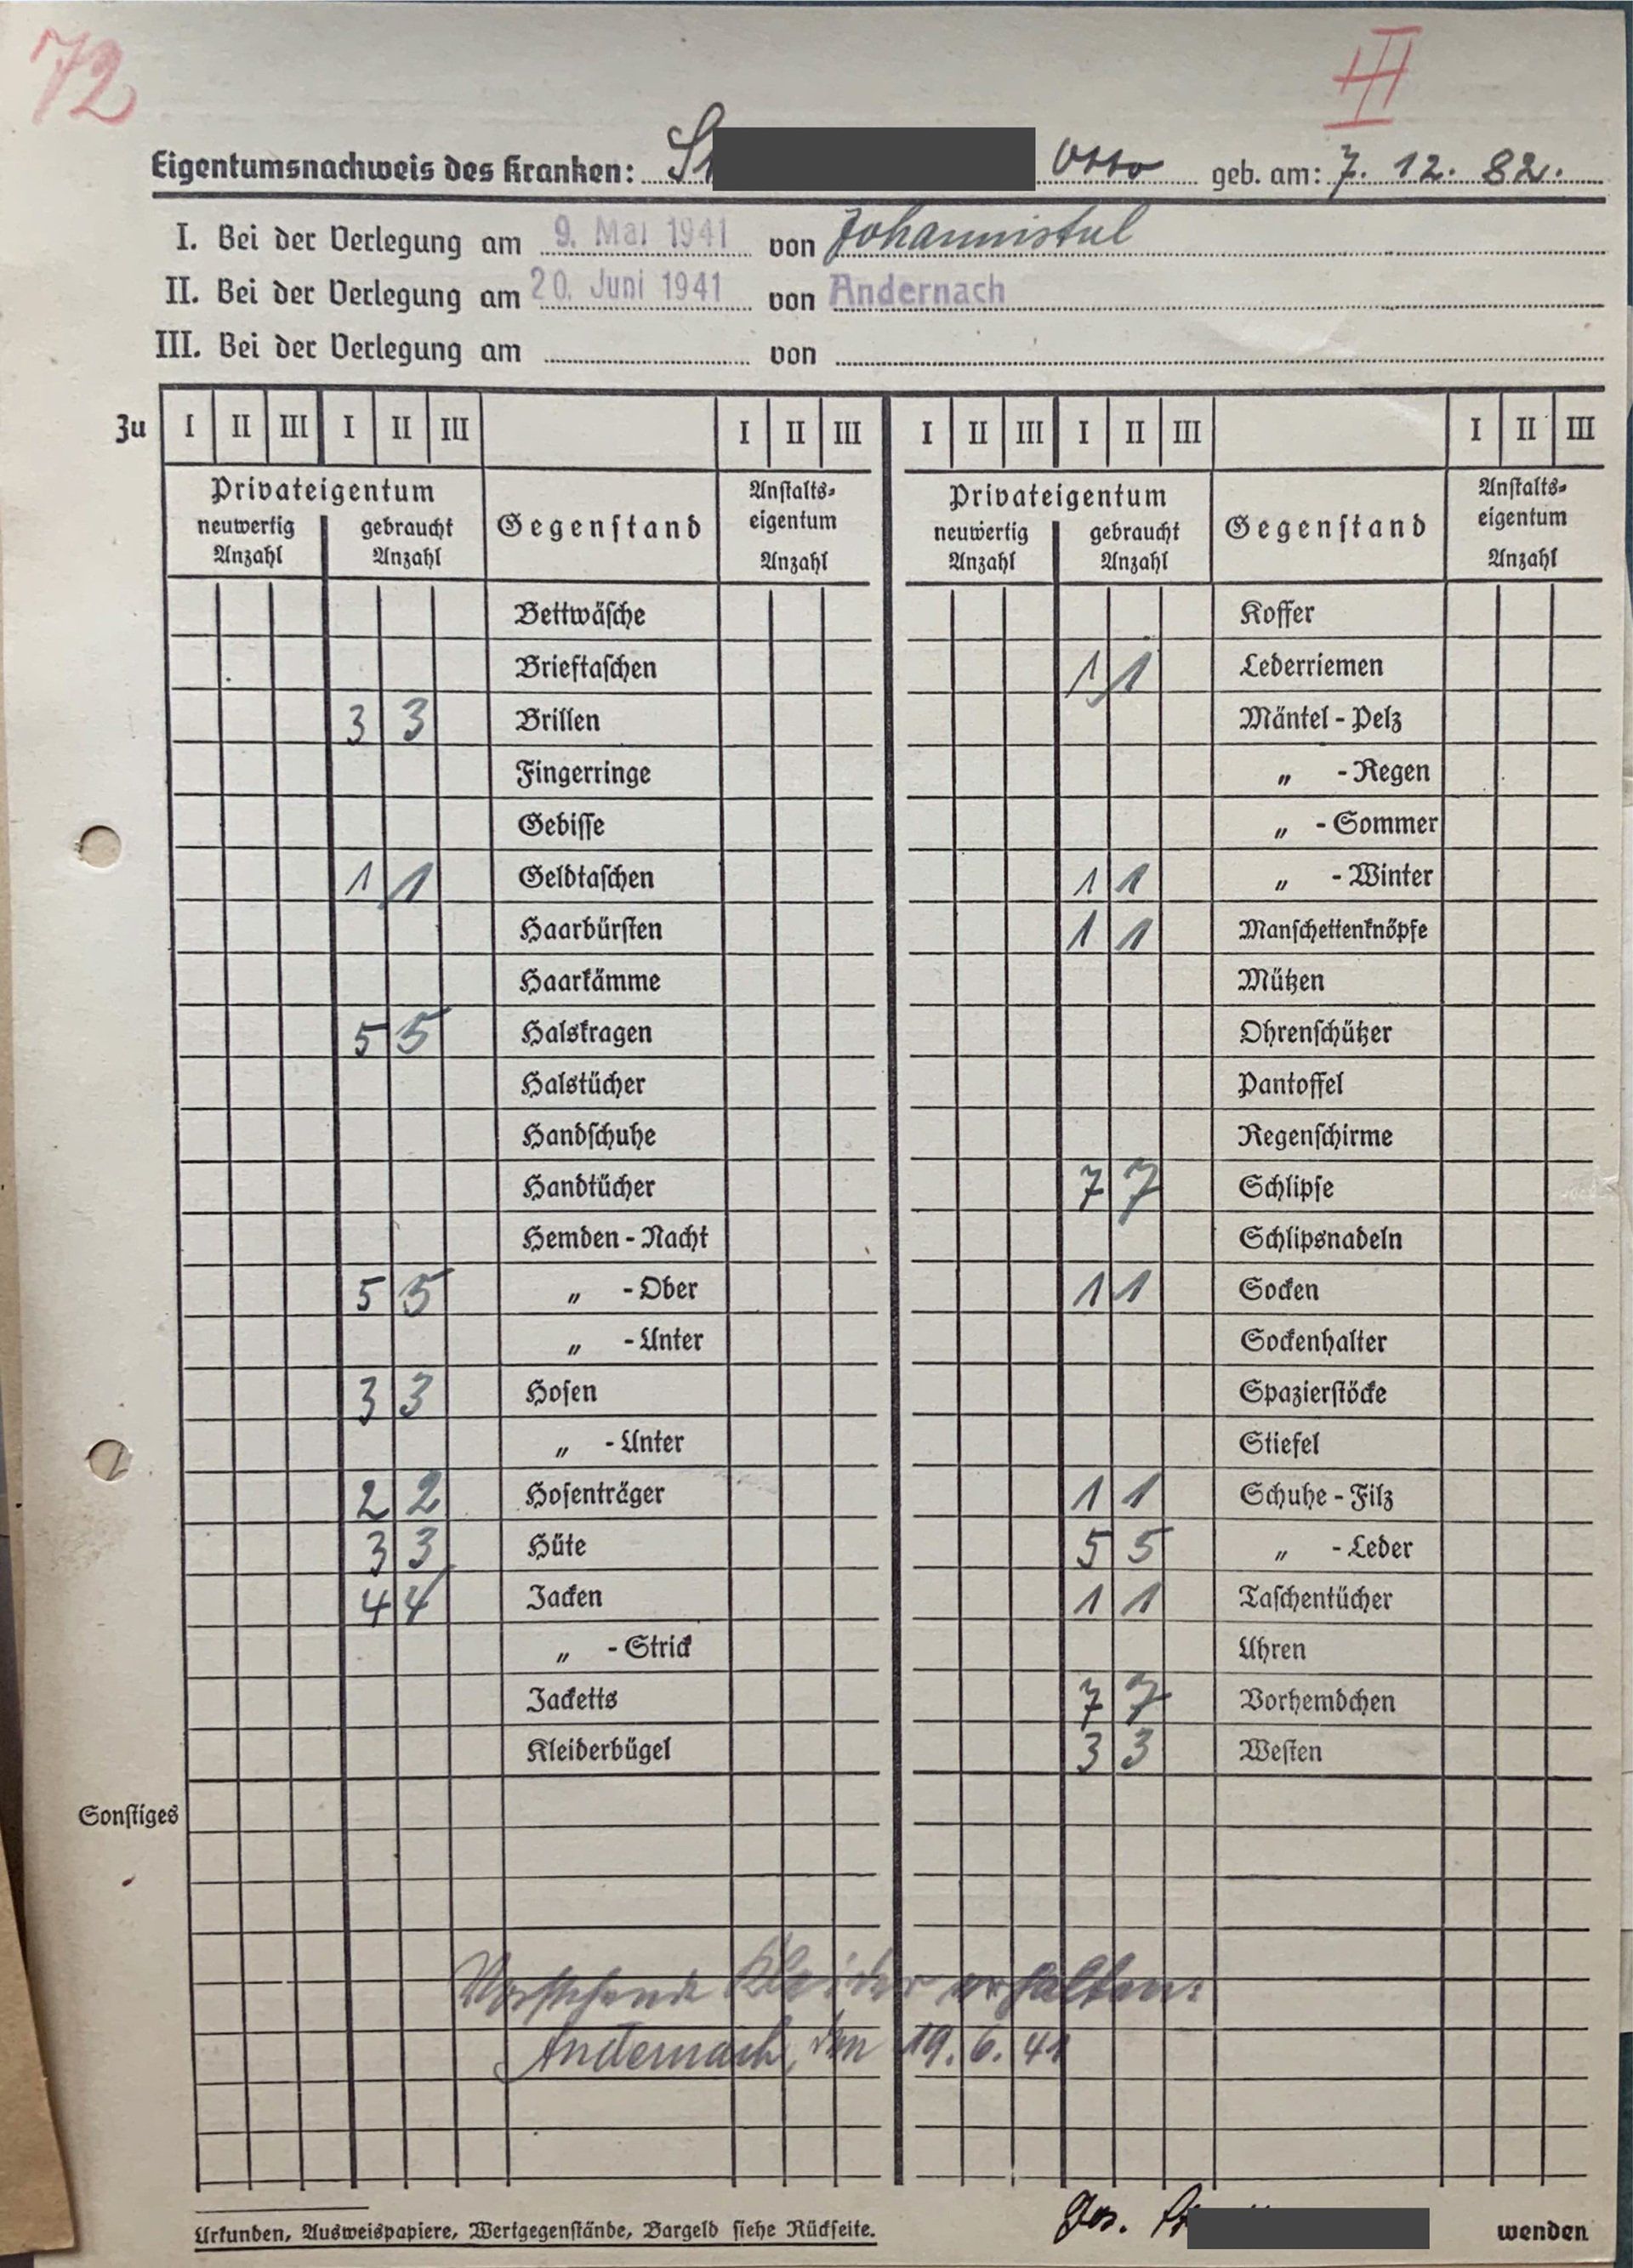 72
III
Eigentumsnachweis des Kranken: St Otto geb. am: 7. 12. 82.
I. Bei der Verlegung am 9. Mai 1941 von Johannistal
II. Bei der Verlegung am 20. Juni 1941 von Andernach
III. Bei der Verlegung am von
Zu I II III I II III I II III I II III I II III I II III
Privateigentum Anstalts- Privateigentum Anstalts-
neuwertig gebraucht Gegenstand eigentum neuwertig gebraucht Gegenstand eigentum
Anzahl Anzahl Anzahl Anzahl Anzahl Anzahl
Bettwäsche Koffer
Brieftaschen 1 1 Lederriemen
3 3 Brillen Mäntel - Pelz
Fingerringe „ - Regen
Gebisse „ - Sommer
1 1 Geldtaschen 1 1 „ - Winter
Haarbürsten 1 1 Manschettenknöpfe
Haarkämme Mützen
5 5 Halskragen Ohrenschützer
Halstücher Pantoffel
Handschuhe Regenschirme
Handtücher 7 7 Schlipse
Hemden - Nacht Schlipsnadeln
5 5 „ - Ober 1 1 Socken
„ - Unter Sockenhalter
3 3 Hosen Spazierstöcke
„ - Unter Stiefel
2 2 Hosenträger 1 1 Schuhe - Filz
3 3 Hüte 5 5 „ - Leder
4 4 Jacken 1 1 Taschentücher
„ - Strick Uhren
Jacketts 7 7 Vorhemdchen
Kleiderbügel 3 3 Westen
Sonstiges
Vorstehende Kleider erhalten:
Andernach, den 19. 6. 41
Jos.
Urkunden, Ausweispapiere, Wertgegenstände, Bargeld siehe Rückseite. wenden